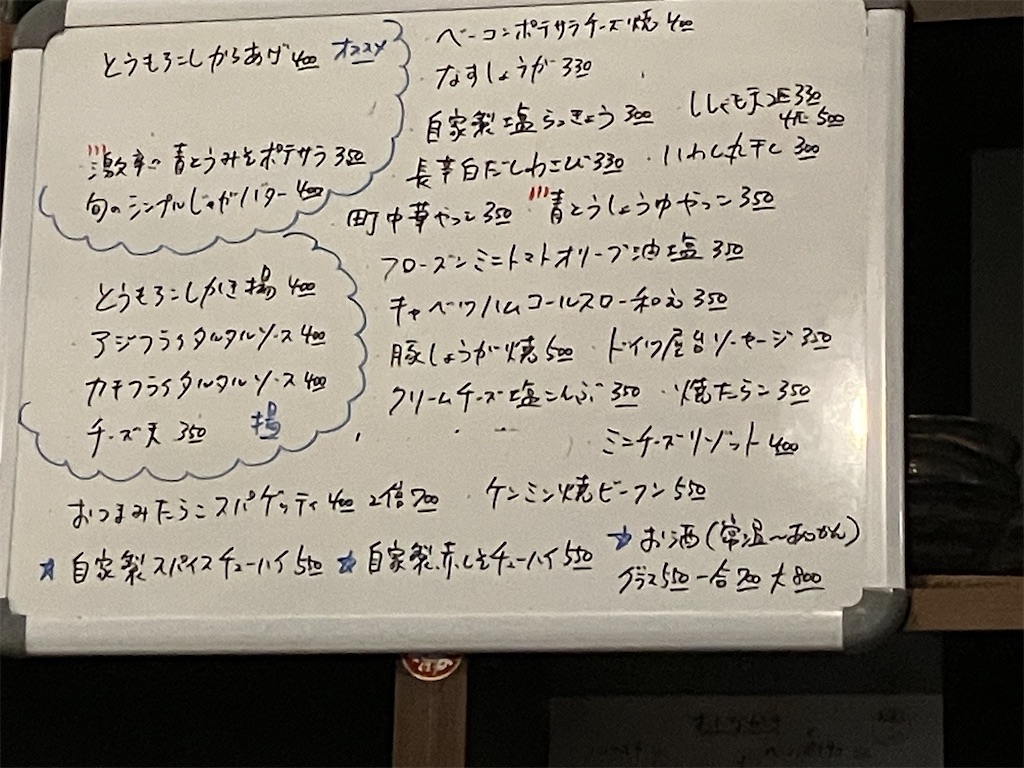 とうもろこしからあげ 400 オススメ
激辛い 青とうみそポテサラ 350
旬のシンプルじゃがバター 400
とうもろこしかき揚 400
アジフライタルタルソース 400
カキフライタルタルソース 400
チーズ天 350 揚
ベーコンポテサラチーズ焼 400
なすしょうが 330
自家製塩らっきょう 300 ししゃも天 2匹 330
4匹 500
長芋白だしわさび 330 ・いわし丸干し 300
町中華やっこ 350 青とうしょうゆやっこ 350
フローズンミニトマトオリーブ油塩 350
キャベツハムコールスロー和え 350
豚しょうが焼 500 ・ドイツ屋台ソーセージ 350
クリームチーズ塩こんぶ 350 ・焼たらこ 350
ミニチーズリゾット 400
おつまみたらこスパゲッティ 400 2倍 700 ・ケンミン焼ビーフン 550
★自家製スパイスチューハイ 550 ★自家製赤しそチューハイ 550
★お酒(常温〜あつかん)
グラス 550 一合 700 大 800